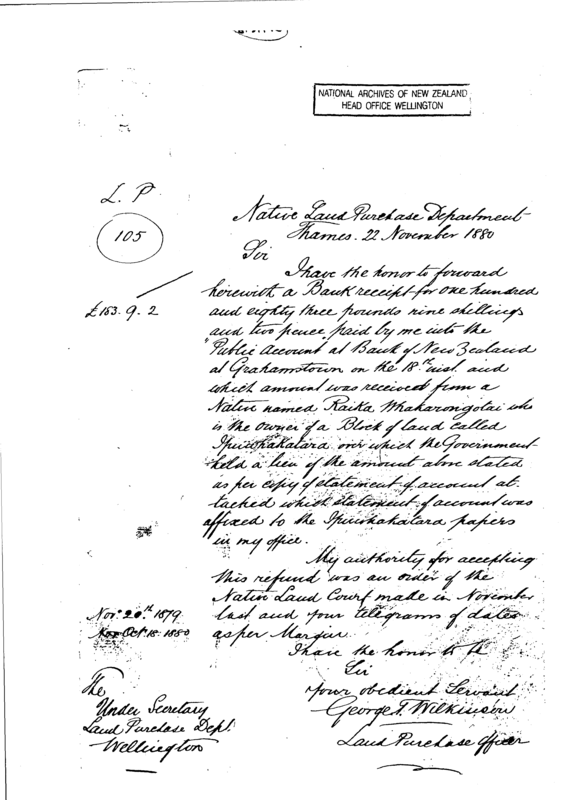 NATIONAL ARCHIVES OF NEW ZEALAND
HEAD OFFICE WELLINGTON
L. P
105
Native Land Purchase Department
Thames. 22 November 1880
Sir
I have the honor to forward
herewith a Bank receipt for one hundred
£183. 9. 2
and eighty three pounds nine shillings
and two pence paid by me into the
"Public Account at Bank of New Zealand
at Grahamstown on the 18th inst. and
which amount was received from a
Native named Raika Whakarongotai who
is the owner of a Block of land called
Ipuwhakatara over which the Government
held a lien of the amount above stated
as per copy of statement of account at-
tached which statement of account was
affixed to the Ipuwhakatara papers
in my office.
My authority for accepting
this refund was an order of the
Native Land Court made in November
last and your telegrams of dates
as per Margin.
Nov: 20th 1879
Oct 18 1880
I have the honor to be
Sir
your obedient Servant
George T. Wilkinson
Land Purchase Officer
The
Under Secretary
Land Purchase Dept:
Wellington